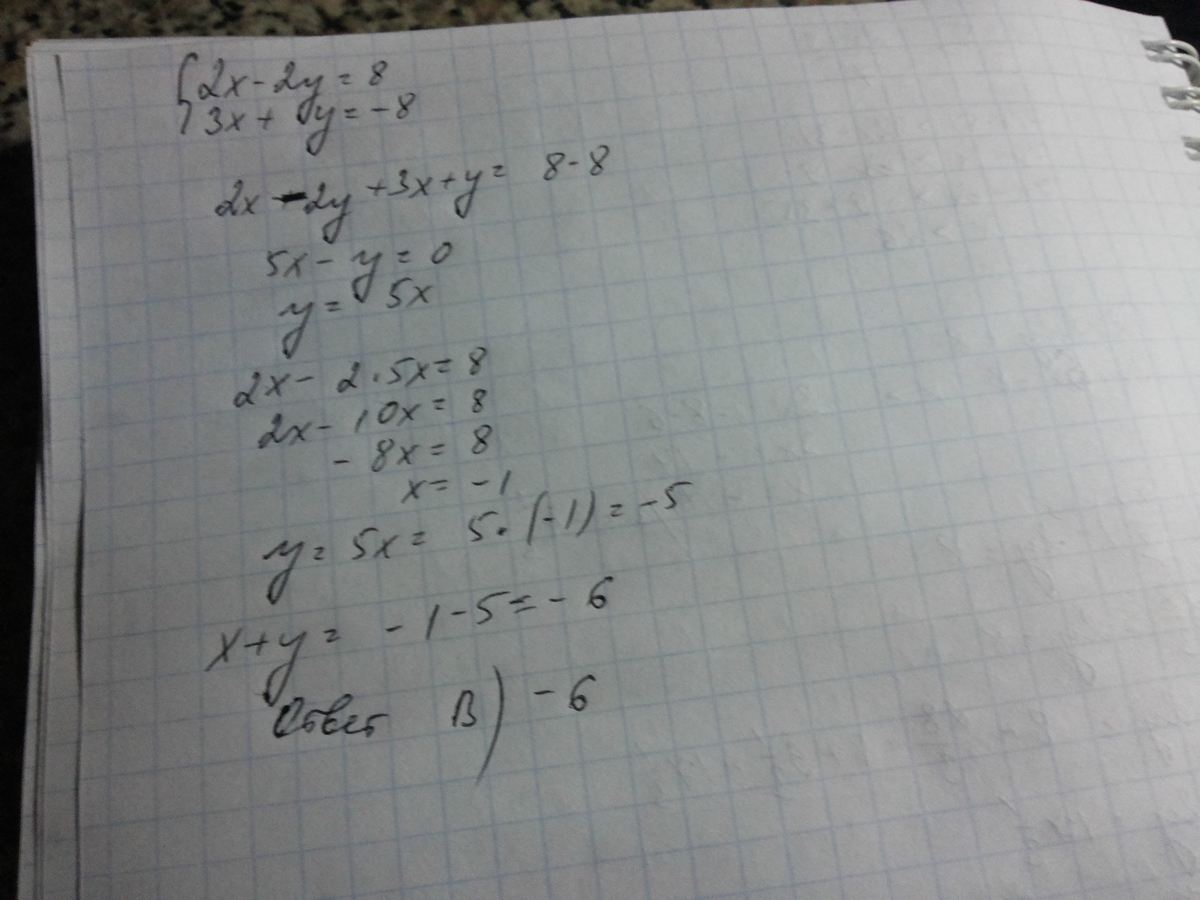 {2x - 2y = 8
3x + y = -8
2x - 2y + 3x + y = 8 - 8
5x - y = 0
y = 5x
2x - 2 · 5x = 8
2x - 10x = 8
- 8x = 8
x = -1
y = 5x = 5 · (-1) = -5
x + y = -1 - 5 = -6
Ответ В) - 6